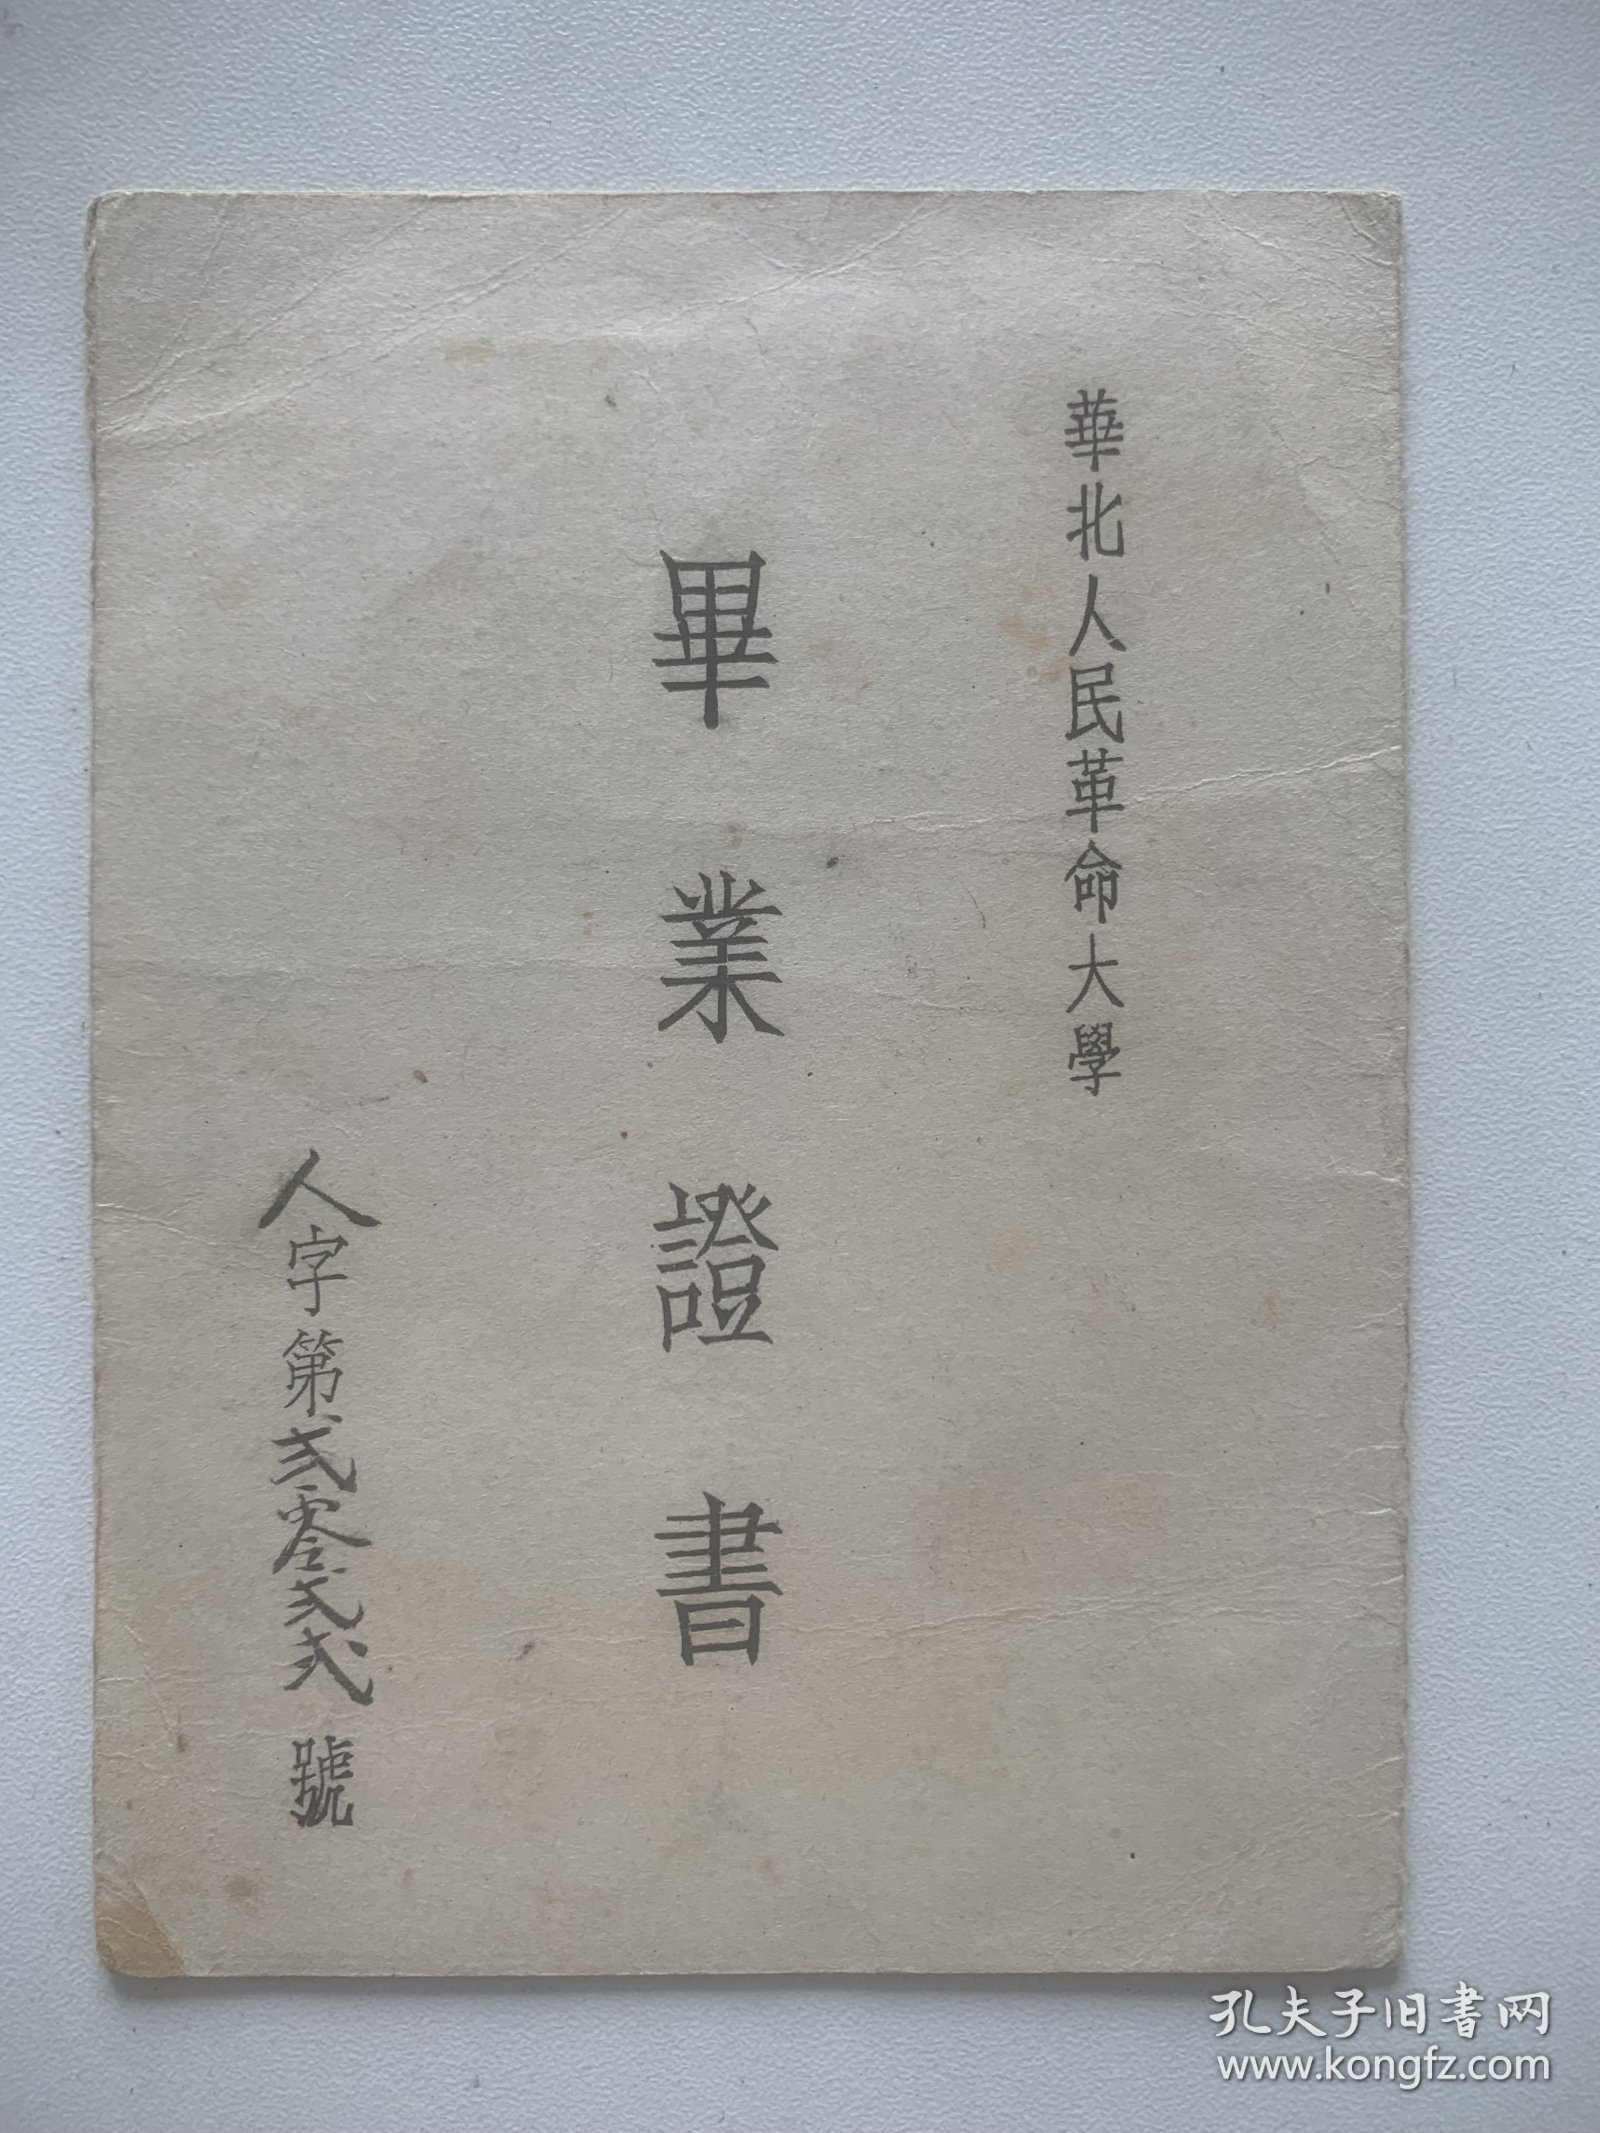 華北人民革命大學
畢業證書
人字第弍零弍弍號
孔夫子旧書网
www.kongfz.com